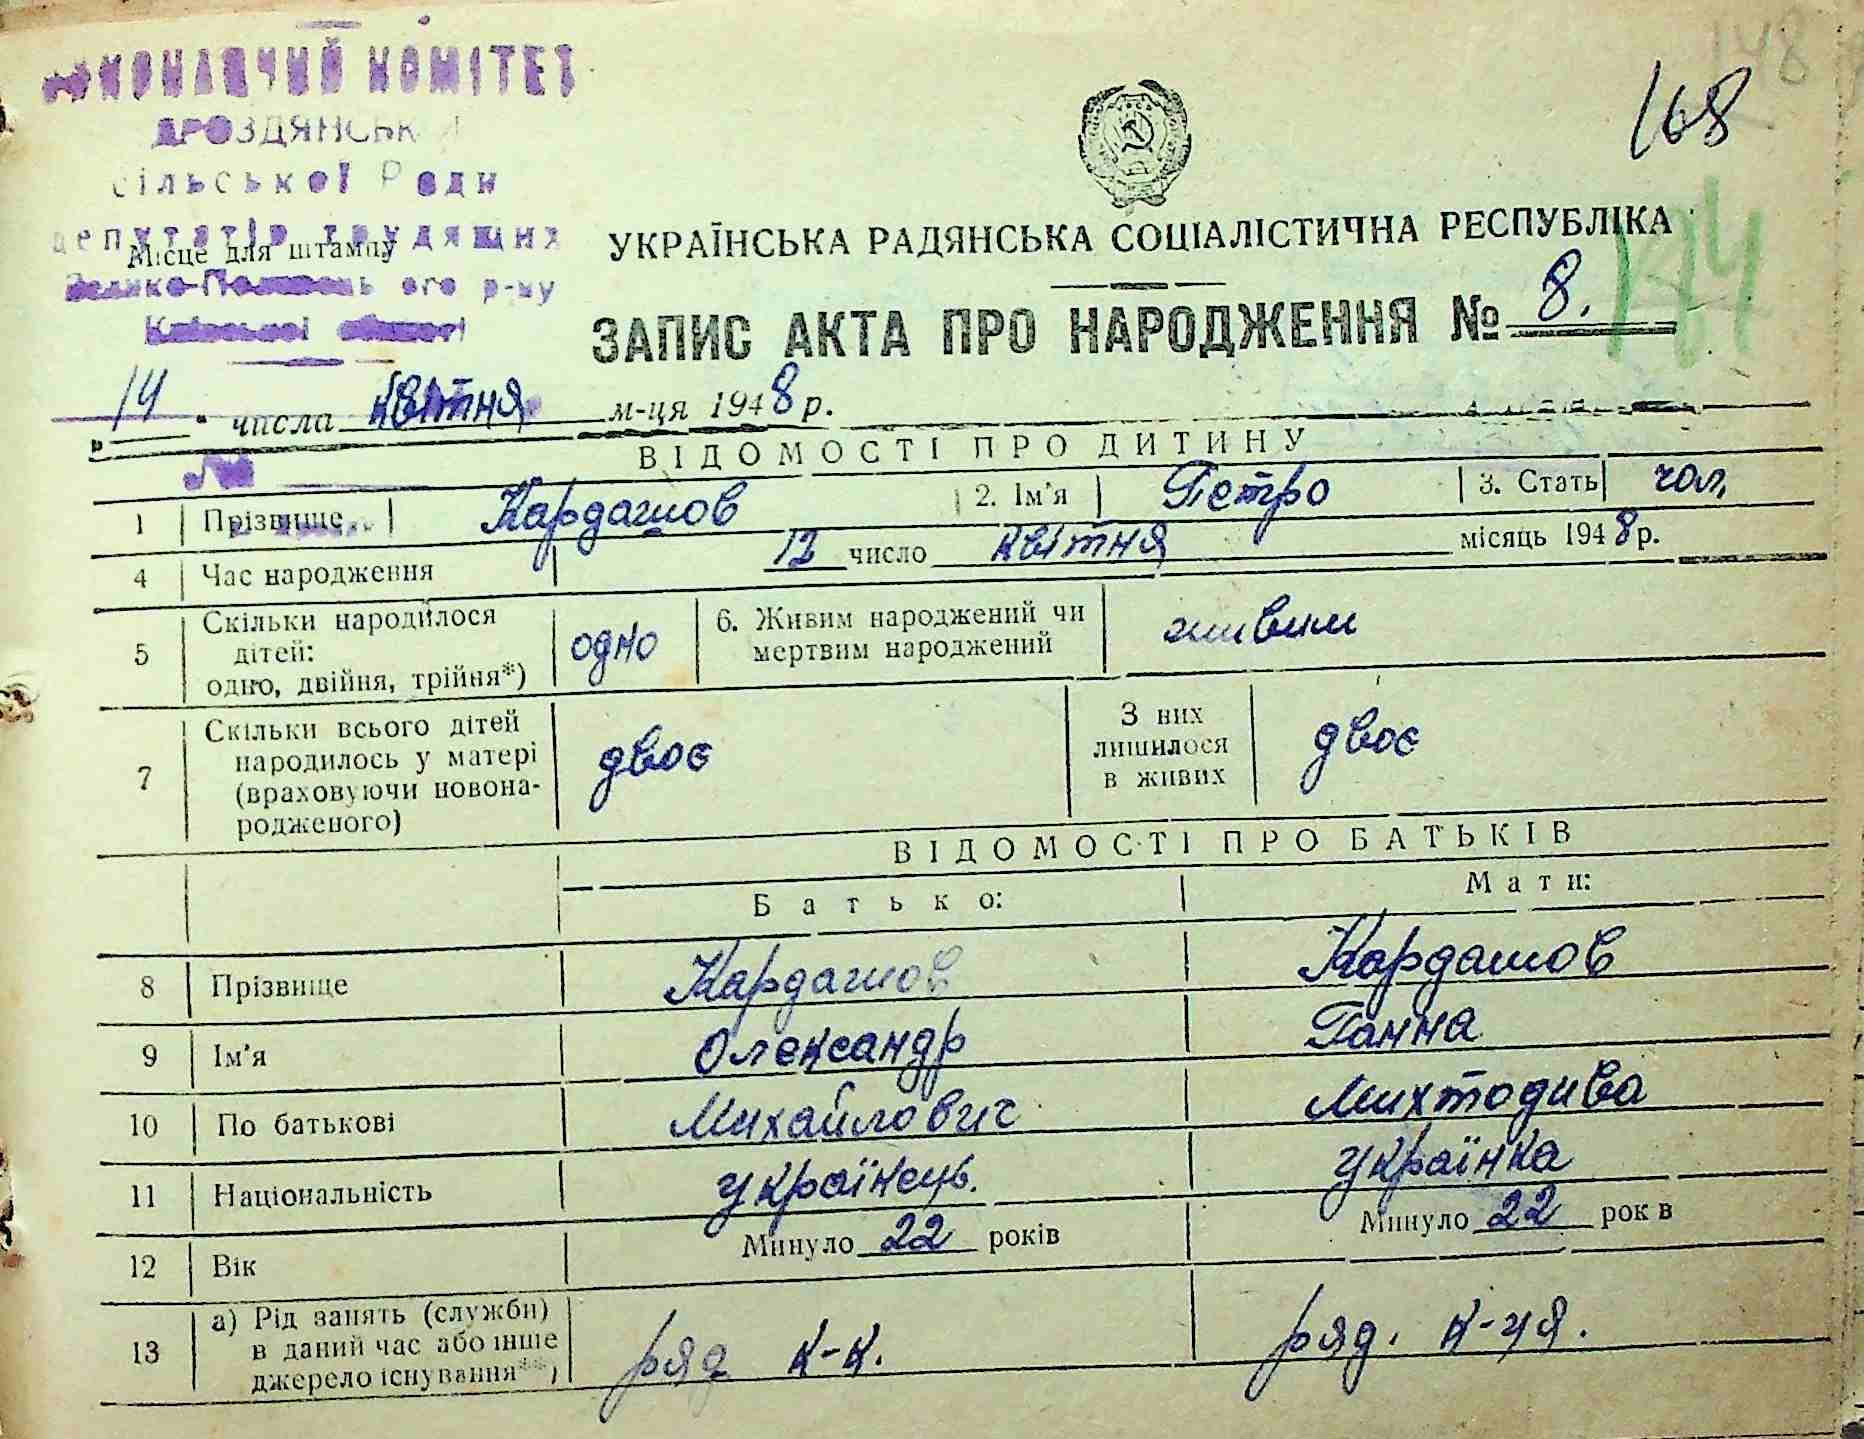 148
168
ВИКОНАВЧИЙ КОМІТЕТ
ДРОЗДЯНСЬК
сільської Ради
депутатів трудящих
Місце для штампу
Велико-Половець ого р-ну
Київської області
УКРАЇНСЬКА РАДЯНСЬКА СОЦІАЛІСТИЧНА РЕСПУБЛІКА
ЗАПИС АКТА ПРО НАРОДЖЕННЯ № 8.
„14" числа квітня м-ця 1948 р.
№
ВІДОМОСТІ ПРО ДИТИНУ
1 Прізвище Кардашов 2. Ім'я Петро 3. Стать чол.
4 Час народження 12 число квітня місяць 1948 р.
5 Скільки народилося дітей: одно, двійня, трійня*) одно 6. Живим народжений чи мертвим народжений живим
7 Скільки всього дітей народилось у матері (враховуючи новонародженого) двоє З них лишилося в живих двоє
ВІДОМОСТІ ПРО БАТЬКІВ
Батько: Мати:
8 Прізвище Кардашов Кардашов
9 Ім'я Олександр Ганна
10 По батькові Михайлович Михтодива
11 Національність українець. українка
12 Вік Минуло 22 років Минуло 22 рок в
13 а) Рід занять (служби) в даний час або інше джерело існування**) ряд к-к. ряд. к-ця.